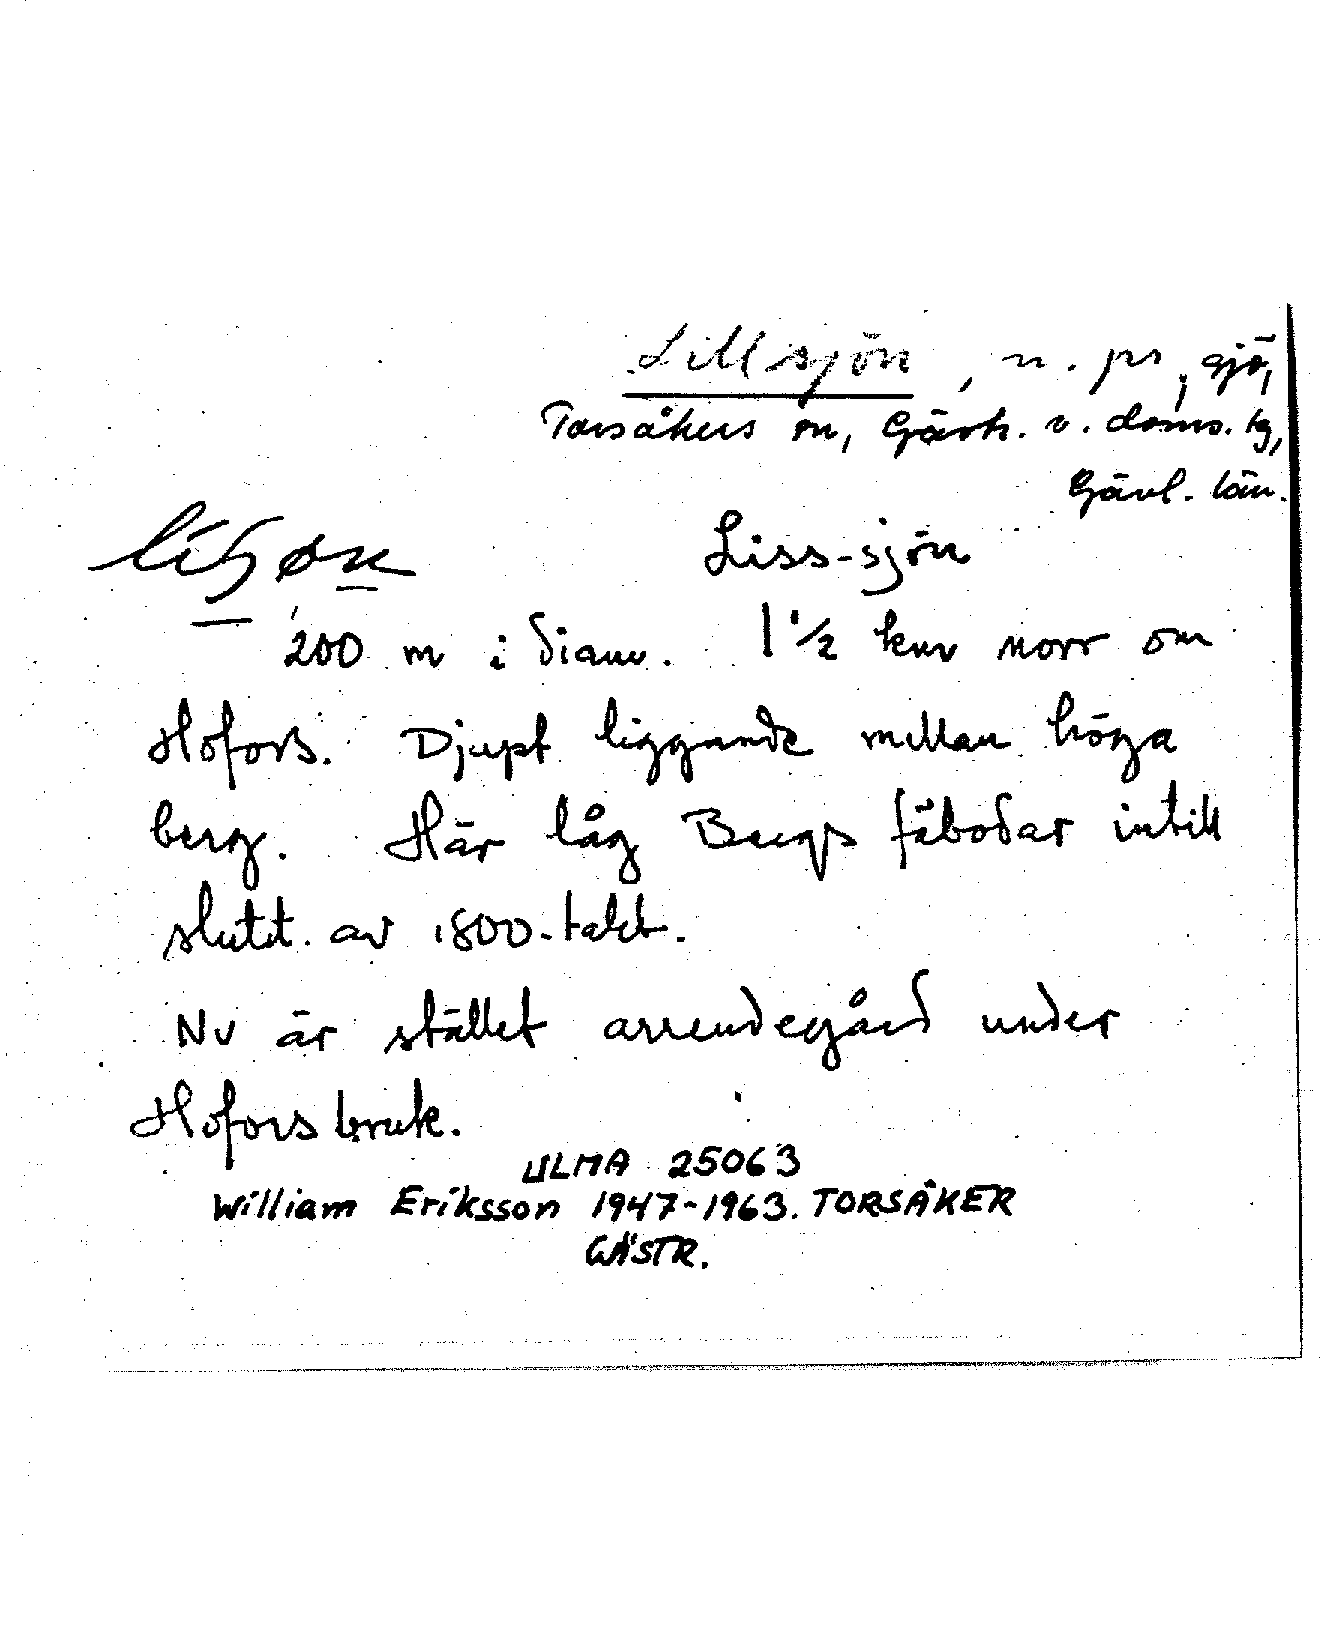 Lillsjön, n. pr, sjö,
Torsåkers sn, Gästr. v. doms. lg,
Gävl. län.
Liss-sjön
200 m i diam. 1 1/2 km norr om
Hofors. Djupt liggande mellan höga
berg. Här låg Bergs fäbodar intill
slutet av 1800-talet.
Nu är stället arrendegård under
Hofors bruk.
ULMA 25063
William Eriksson 1947-1963. TORSÅKER
GÄSTR.